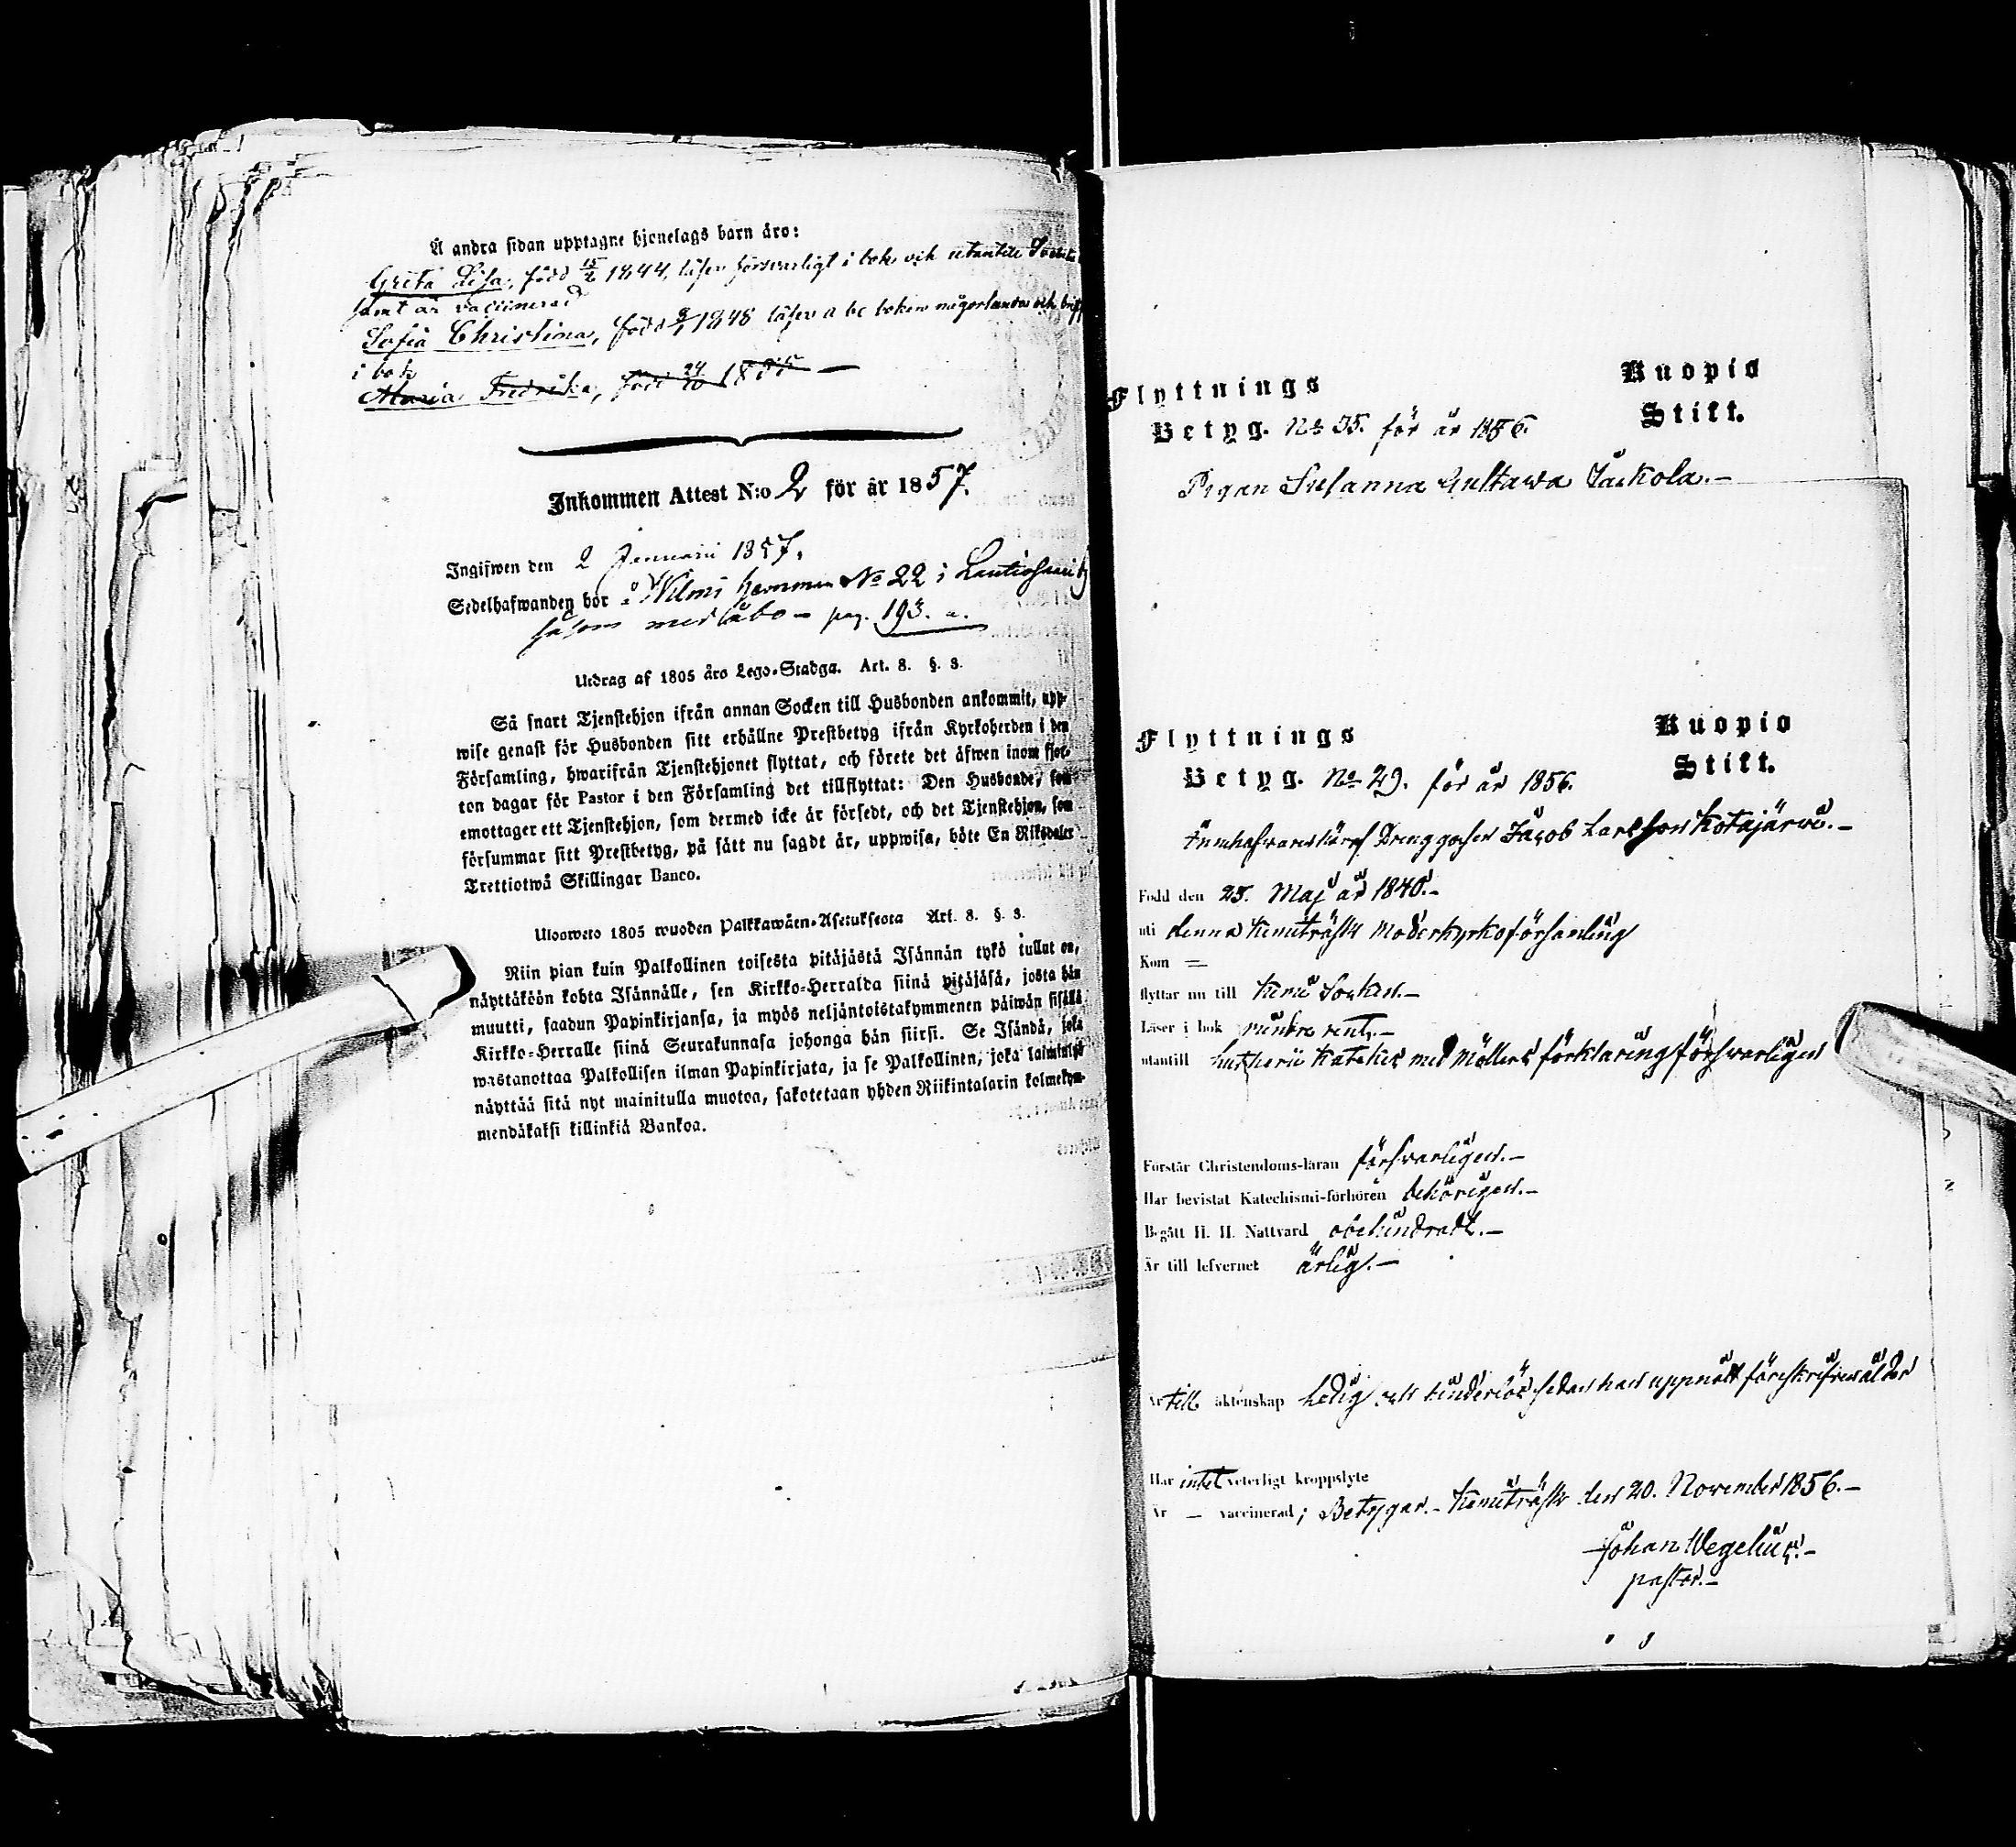 Å andra sidan upptagne hjonelags barn äro:
Greta Lisa, född 15/2 1844, läser försvarligt i bok och utantill
samt är vaccinerad
Sofia Christina, född 9/1 1848 läser a bc boken någorlunda och
i bok
Maria Fredrika, född 24/10 1855 —
Inkommen Attest N:o 2 för år 1857.
Ingifwen den 2 Januarii 1857.
Sedelhafwanden bor å Wilmi hemman No 22 i
såsom med åbo – pag. 193. a.
Utdrag af 1805 års Lego-Stadga. Art. 8. §. 3.
Så snart Tjenstehjon ifrån annan Socken till Husbonden ankommit, upp-
wise genast för Husbonden sitt erhållne Prestbetyg ifrån Kyrkoherden i den
Församling, hwarifrån Tjenstehjonet flyttat, och förete det äfwen inom fjor-
ton dagar för Pastor i den Församling det tillflyttat: Den Husbonde, som
emottager ett Tjenstehjon, som dermed icke är försedt, och det Tjenstehjon, som
försummar sitt Prestbetyg, på sätt nu sagdt är, uppwisa, böte En Riksdaler
Trettiotwå Skillingar Banco.
Uloswelo 1805 wuoden Palkkawäen-Asetuksesta Art. 8. §. 3.
Niin pian kuin Palkollinen toisesta pitäjästä Isännän tykö tullut on,
näyttäköön kohta Isännälle, sen Kirkko-Herralda siinä pitäjäsä, josta hän
muutti, saadun Papinkirjansa, ja myös neljäntoistakymmenen päiwän sisällä
Kirkko-Herralle siinä Seurakunnasa johonga hän siirsi. Se Isändä, joka
wastanottaa Palkollisen ilman Papinkirjata, ja se Palkollinen, joka laiminlyö
näyttää sitä nyt mainitulla muotoa, sakotetaan yhden Riikintalarin kolmekym-
mendäkaksi killinkiä Bankoa.
Flyttnings Kuopio
Betyg. No 35. för år 1856. Stift.
Pigan Susanna Gustawa Jaakola.–
Flyttnings Kuopio
Betyg. No 29. för år 1856. Stift.
Drenggossen Jacob Larsson Kotajärwi.–
Född den 25. Maj år 1840.–
uti denna Kemiträsk Moderkyrkoförsamling
Kom =
flyttar nu till Kemi Socken.–
Läser i bok mindre rent,–
utantill Lutherii Kateches med Möllers förklaring försvarligen
Förstår Christendoms-läran försvarligen.–
Har bevistat Katechismi-förhören behörigen.–
Begått H. H. Nattvard obehindradt.–
Är till lefvernet ärlig.–
Är till äktenskap ledig och hinderlös sedan han uppnått föreskrifven ålder
Har intet veterligt kroppslyte
Är – vaccinerad; Betygar.– Kemiträsk den 20. November 1856.–
Johan Wegelius.–
pastor.–